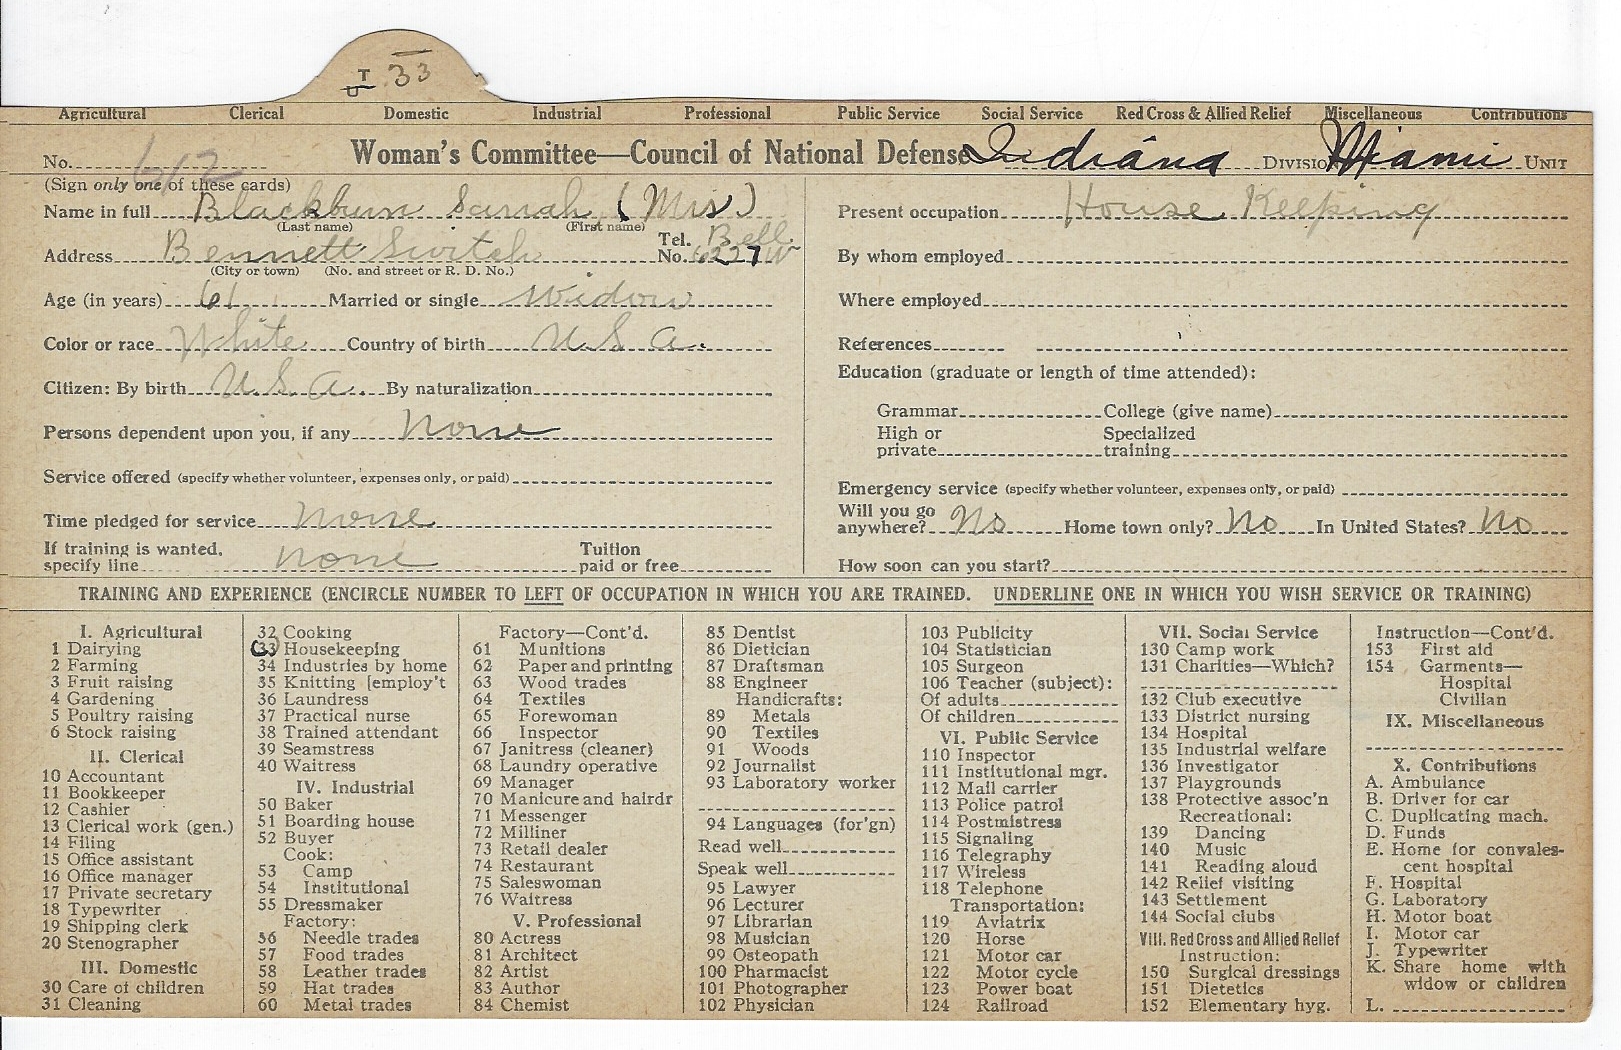 T 33
U
Agricultural Clerical Domestic Industrial Professional Public Service Social Service Red Cross & Allied Relief Miscellaneous Contributions
No. 612 Woman's Committee—Council of National Defense Indiana Division Miami Unit
(Sign only one of these cards)
Name in full Blackburn Sarah (Mrs)
(Last name) (First name)
Address Bennett Switch Tel. No. Bell 6227 W
(City or town) (No. and street or R. D. No.)
Age (in years) 61 Married or single Widow
Color or race White Country of birth U.S.A.
Citizen: By birth U.S.A. By naturalization
Persons dependent upon you, if any None
Service offered (specify whether volunteer, expenses only, or paid)
Time pledged for service None
If training is wanted, specify line none Tuition paid or free
Present occupation House Keeping
By whom employed
Where employed
References
Education (graduate or length of time attended):
Grammar College (give name)
High or private Specialized training
Emergency service (specify whether volunteer, expenses only, or paid)
Will you go anywhere? No Home town only? No In United States? No
How soon can you start?
TRAINING AND EXPERIENCE (ENCIRCLE NUMBER TO LEFT OF OCCUPATION IN WHICH YOU ARE TRAINED. UNDERLINE ONE IN WHICH YOU WISH SERVICE OR TRAINING)
I. Agricultural
1 Dairying
2 Farming
3 Fruit raising
4 Gardening
5 Poultry raising
6 Stock raising
II. Clerical
10 Accountant
11 Bookkeeper
12 Cashier
13 Clerical work (gen.)
14 Filing
15 Office assistant
16 Office manager
17 Private secretary
18 Typewriter
19 Shipping clerk
20 Stenographer
III. Domestic
30 Care of children
31 Cleaning
32 Cooking
33 Housekeeping
34 Industries by home
35 Knitting [employ't
36 Laundress
37 Practical nurse
38 Trained attendant
39 Seamstress
40 Waitress
IV. Industrial
50 Baker
51 Boarding house
52 Buyer
Cook:
53 Camp
54 Institutional
55 Dressmaker
Factory:
56 Needle trades
57 Food trades
58 Leather trades
59 Hat trades
60 Metal trades
Factory—Cont'd.
61 Munitions
62 Paper and printing
63 Wood trades
64 Textiles
65 Forewoman
66 Inspector
67 Janitress (cleaner)
68 Laundry operative
69 Manager
70 Manicure and hairdr
71 Messenger
72 Milliner
73 Retail dealer
74 Restaurant
75 Saleswoman
76 Waitress
V. Professional
80 Actress
81 Architect
82 Artist
83 Author
84 Chemist
85 Dentist
86 Dietician
87 Draftsman
88 Engineer
Handicrafts:
89 Metals
90 Textiles
91 Woods
92 Journalist
93 Laboratory worker
94 Languages (for'gn)
Read well
Speak well
95 Lawyer
96 Lecturer
97 Librarian
98 Musician
99 Osteopath
100 Pharmacist
101 Photographer
102 Physician
103 Publicity
104 Statistician
105 Surgeon
106 Teacher (subject):
Of adults
Of children
VI. Public Service
110 Inspector
111 Institutional mgr.
112 Mail carrier
113 Police patrol
114 Postmistress
115 Signaling
116 Telegraphy
117 Wireless
118 Telephone
Transportation:
119 Aviatrix
120 Horse
121 Motor car
122 Motor cycle
123 Power boat
124 Railroad
VII. Social Service
130 Camp work
131 Charities—Which?
132 Club executive
133 District nursing
134 Hospital
135 Industrial welfare
136 Investigator
137 Playgrounds
138 Protective assoc'n
Recreational:
139 Dancing
140 Music
141 Reading aloud
142 Relief visiting
143 Settlement
144 Social clubs
VIII. Red Cross and Allied Relief
Instruction:
150 Surgical dressings
151 Dietetics
152 Elementary hyg.
Instruction—Cont'd.
153 First aid
154 Garments—
Hospital
Civilian
IX. Miscellaneous
X. Contributions
A. Ambulance
B. Driver for car
C. Duplicating mach.
D. Funds
E. Home for convales-
cent hospital
F. Hospital
G. Laboratory
H. Motor boat
I. Motor car
J. Typewriter
K. Share home with
widow or children
L.